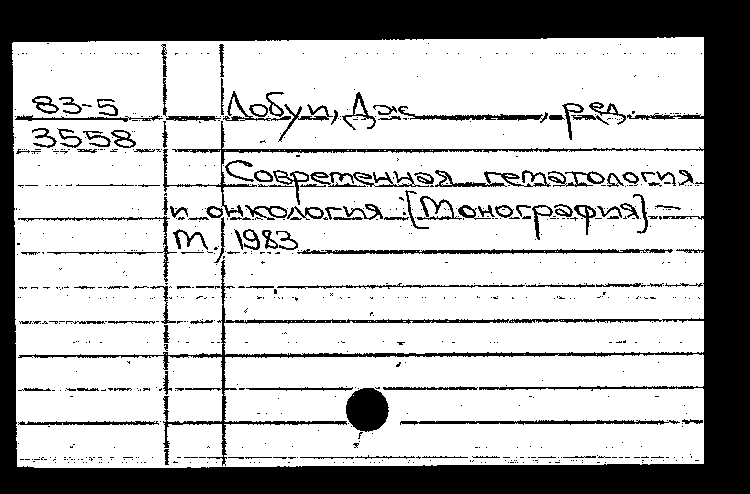 83-5 Лобуи, Дж , ред.
3558
Современная гематология
и онкология :[Монография] –
М., 1983